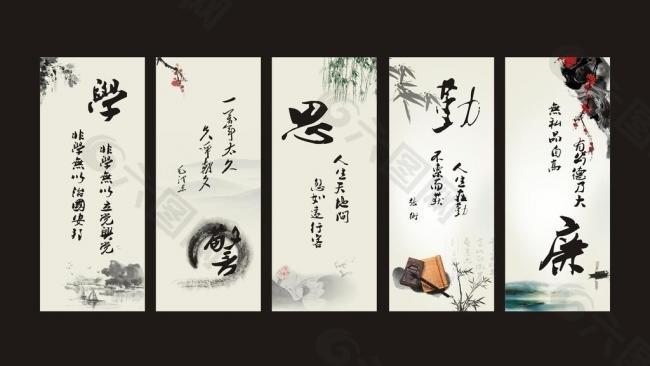 學
非學無以立党興党
非學無以治國安邦
一萬年太久
只争朝夕
毛泽东
警
思
人生天地間
忽如遠行客
勤
人生在勤
不索何获
张衡
有功德乃大
無私品自高
廉